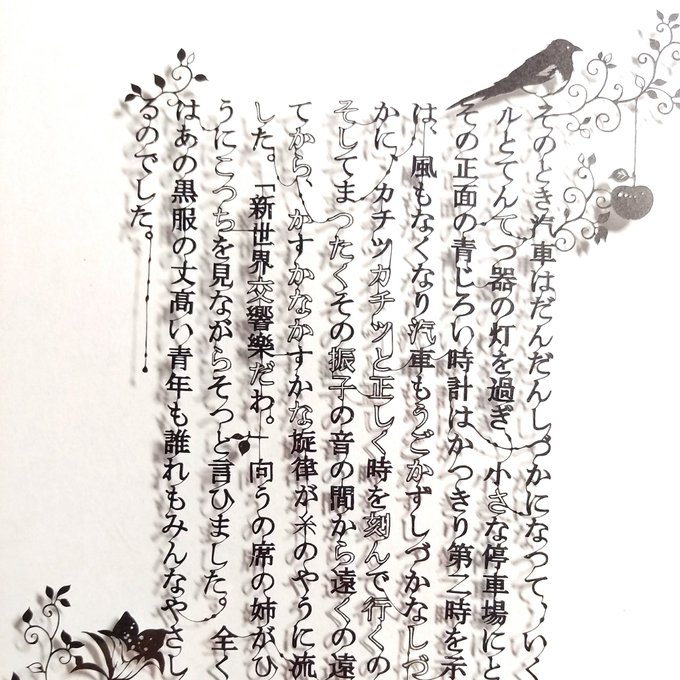 そのとき汽車はだんだんしづかになつて、いく
ルとてんてつ器の灯を過ぎ、小さな停車場にと
その正面の青じろい時計はかつきり第二時を示
は、風もなくなり汽車もうごかずしづかなしづ
かに、カチツカチツと正しく時を刻んで行くの
そしてまつたくその振子の音の間から遠くの遠
てから、かすかなかすかな旋律が糸のやうに流
した。「新世界交響樂だわ。」向うの席の姉がひ
うにこつちを見ながらそつと言ひました。全く
はあの黒服の丈高い青年も誰れもみんなやさし
るのでした。